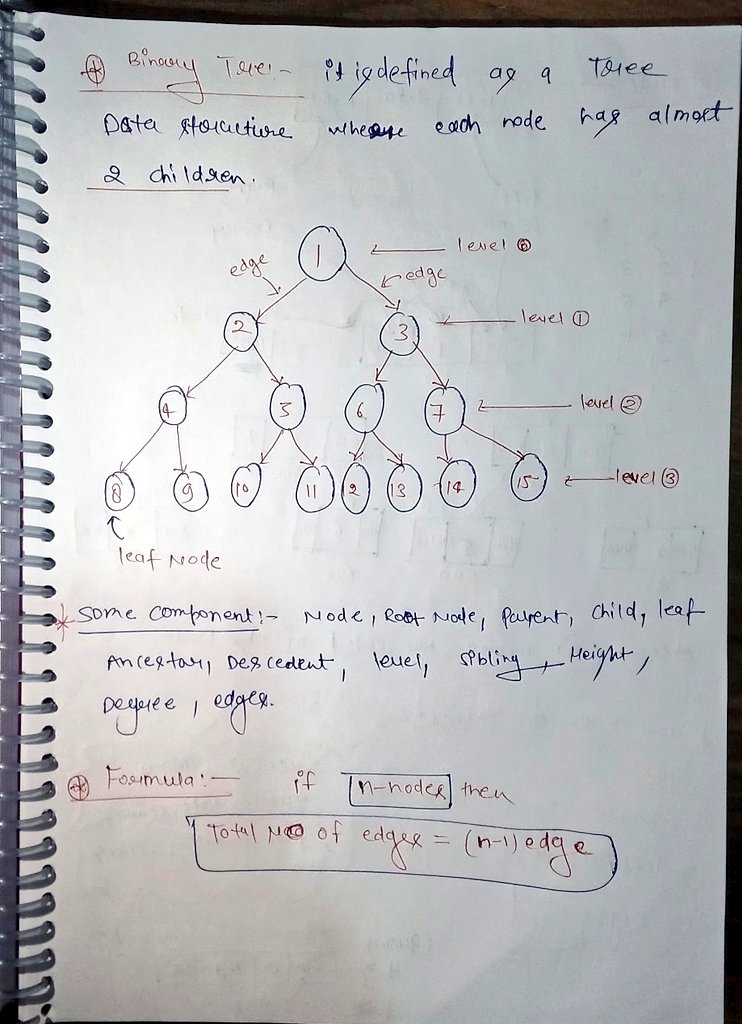 Binary Tree:- it is defined as a Tree
Data structure where each node has almost
2 children.
1 level 0
edge edge
2 3 level 1
4 5 6 7 level 2
8 9 10 11 12 13 14 15 level 3
leaf Node
* Some component:- Node, Root Node, Parent, child, leaf
Ancestar, Descedent, level, sibling, Height,
Degree, edges.
Formula:- if n-nodes then
Total No of edges = (n-1) edge